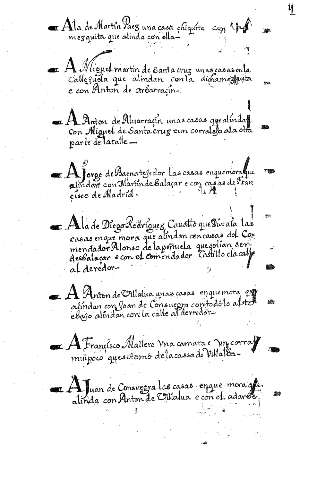 A la de Martin Paez una casa chiquita con
mesquita que alinda con ella
A Miguel martin de Santa cruz unas casas en la
Callejuela que alindan con la dicha mesquita
e con Anton de Albarrazin
A Anton de Alvarrazin unas casas que alindan
con Miguel de Santa cruz e un corralejo a la otra
parte de la calle
A Jorge de Baena texedor las casas en que mora que
alindan con Martin de Salaçar e con casas de Fran
çisco de Madrid
A la de Diego Rodriguez Caustio las
casas en que mora que alindan con casas del Co
mendador Alonso de la peñuela que solian ser
de Salaçar e con el Comendador Castillo e la calle
al deredor
A Anton de Villalva unas casas en que mora
alindan con Joan de Consuegra con todo lo
alindan con la calle al derredor
A Francisco Mallero Una camara e un corral
mui poco que se tomo de la casa de Villalva
A Juan de Consuegra las casas en que mora que
alinda con Anton de Villalva e con el adarve